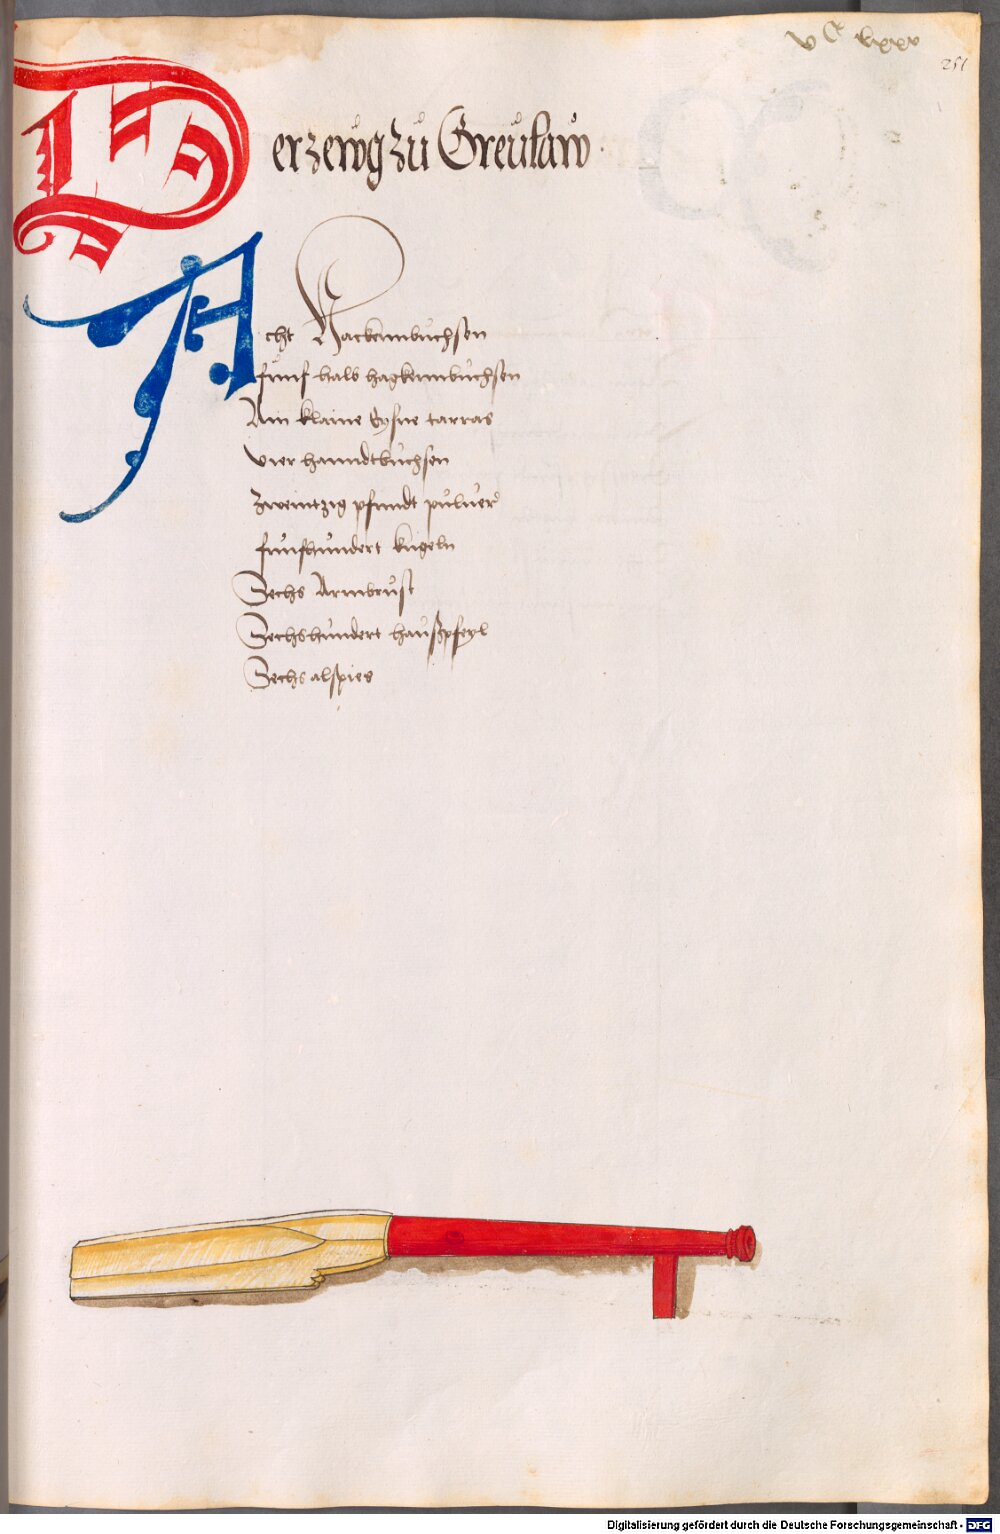 vC lxxx
251
Der zewg zu Greülaw
Acht Hackennbuchsen
fünf halb hagkennbuchsen
Ain klaine Eysne tarras
vier hanndtbuchsen
zweintzig pfundt pulver
fünfhundert kugeln
Sechs Armbrust
Sechshundert haußpfeyl
Sechs alspies
Digitalisierung gefördert durch die Deutsche Forschungsgemeinschaft - DFG